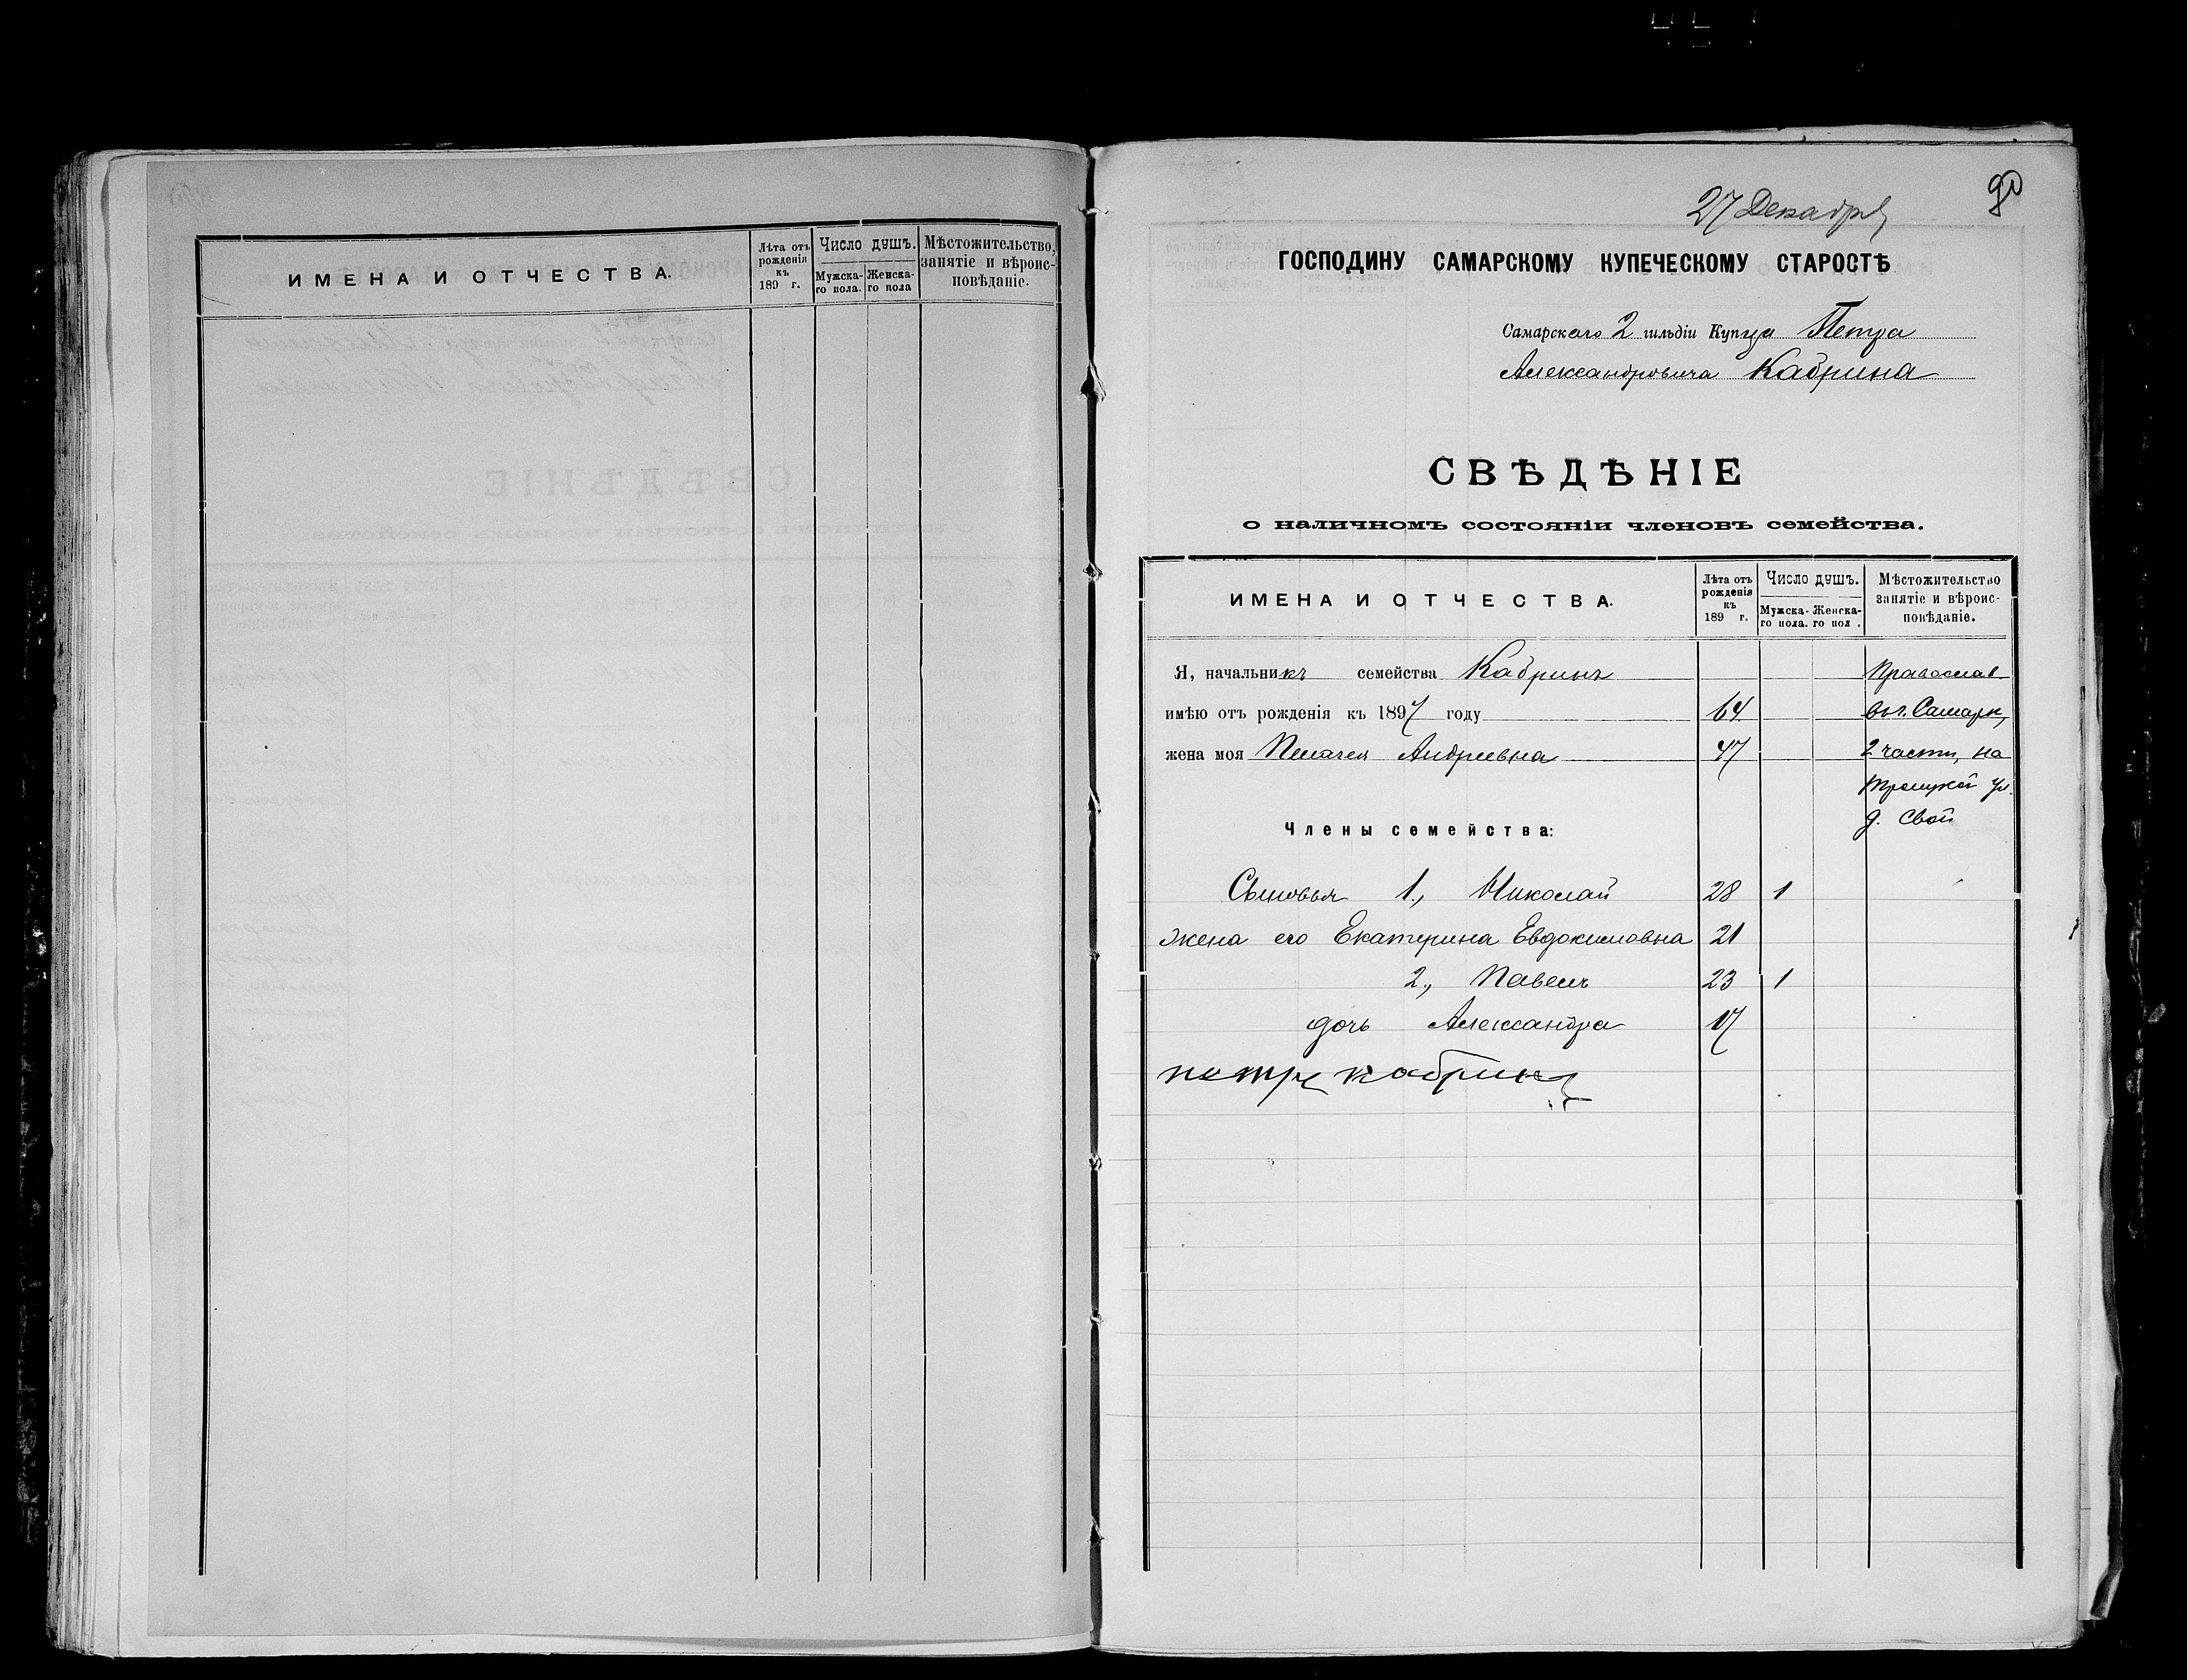 ИМЕНА И ОТЧЕСТВА.
Лѣта отъ рожденія къ 189 г.
Число душъ.
Мужска-го пола.
Женска-го пола
Мѣстожительство, занятіе и вѣроис-повѣданіе.
27 Декабря
90
ГОСПОДИНУ САМАРСКОМУ КУПЕЧЕСКОМУ СТАРОСТѢ
Самарскаго 2 гильдіи Купца Петра
Александровича Кабрина
СВѢДѢНІЕ
о наличномъ состояніи членовъ семейства.
ИМЕНА И ОТЧЕСТВА.
Лѣта отъ рожденія къ 189 г.
Число душъ.
Мужска-го пола.
Женска-го пол .
Мѣстожительство занятіе и вѣроис-повѣданіе.
Я, начальникъ семейства Кабринъ Православ.
имѣю отъ рожденія къ 1897 году 64 въ г. Самарѣ,
жена моя Пелагея Андреевна 47 2 части, на
Троицкой ул.
д. Свой
Члены семейства:
Сыновья 1., Николай 28 1
жена его Екатерина Евдокимовна 21
2., Павелъ 23 1
дочь Александра 17
петръ кабринъ